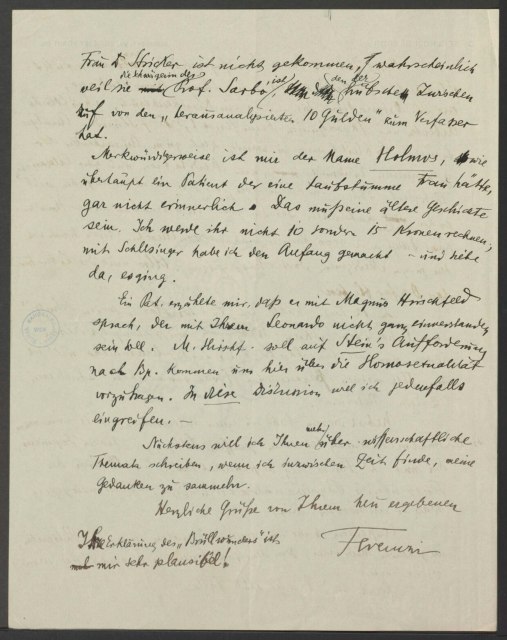 Frau Dr Stricker ist nicht gekommen, wahrscheinlich
die Schwägerin des
weil sie Prof. Sarbo ist, den der hübschen Zwischen
ruf von den „herausanalysierten 10 Gulden" zum Verfasser
hat.
Merkwürdigerweise ist mir der Name Holmos, wie
überhaupt ein Patient der eine taubstumme Frau hätte,
gar nicht erinnerlich. Das muß eine ältere Geschichte
sein. Ich werde ihr nicht 10 sondern 15 Kronen rechnen,
mit Schlesinger habe ich den Anfang gemacht – und siehe
da, es ging.
Ein Pat. erzählte mir, daß er mit Magnus Hirschfeld
sprach, der mit Ihrem Leonardo nicht ganz einverstanden
sein soll. M. Hirschf. soll auf Stein's Aufforderung
nach Bp. kommen um hier über die Homosexualität
vorzutragen. In diese Diskussion will ich jedenfalls
eingreifen. –
Nächstens will ich Ihnen mehr über wissenschaftliche
Themata schreiben, wenn ich inzwischen Zeit finde, meine
Gedanken zu sammeln.
Herzliche Grüße von Ihrem treu ergebenen
Ferenczi
Ihre Erklärung des „Brüllwunders" ist
mir sehr plausibel!